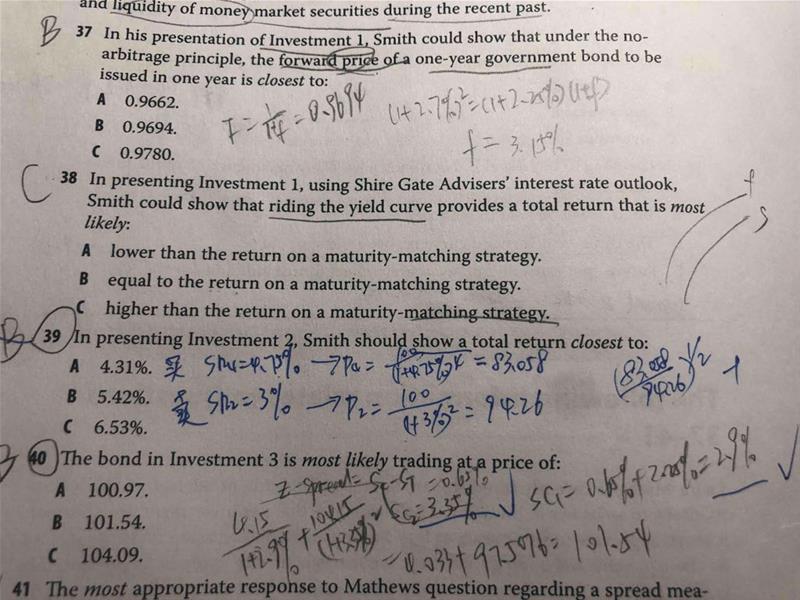 and liquidity of money market securities during the recent past.
B 37 In his presentation of Investment 1, Smith could show that under the no-
arbitrage principle, the forward price of a one-year government bond to be
issued in one year is closest to:
A 0.9662.
B 0.9694.
C 0.9780.
= 0.9694
(1+2.7%)² = (1+2.25%)(1+f)
f = 3.15%
C 38 In presenting Investment 1, using Shire Gate Advisers' interest rate outlook,
Smith could show that riding the yield curve provides a total return that is most
likely:
f
S
A lower than the return on a maturity-matching strategy.
B equal to the return on a maturity-matching strategy.
C higher than the return on a maturity-matching strategy.
B 39 In presenting Investment 2, Smith should show a total return closest to:
A 4.31%.
=4.75% → P4 = 100/(1+4.75%)^4 = 83.058
B 5.42%.
=3% → P2 = 100/(1+3%)² = 94.26
C 6.53%.
(83.058/94.26)^1/2
B 40 The bond in Investment 3 is most likely trading at a price of:
A 100.97.
Z-spread = = 0.65%
SG1 = 0.65% + 2.25% = 2.9%
B 101.54.
= 3.35%
C 104.09.
= 101.54
41 The most appropriate response to Mathews question regarding a spread mea-